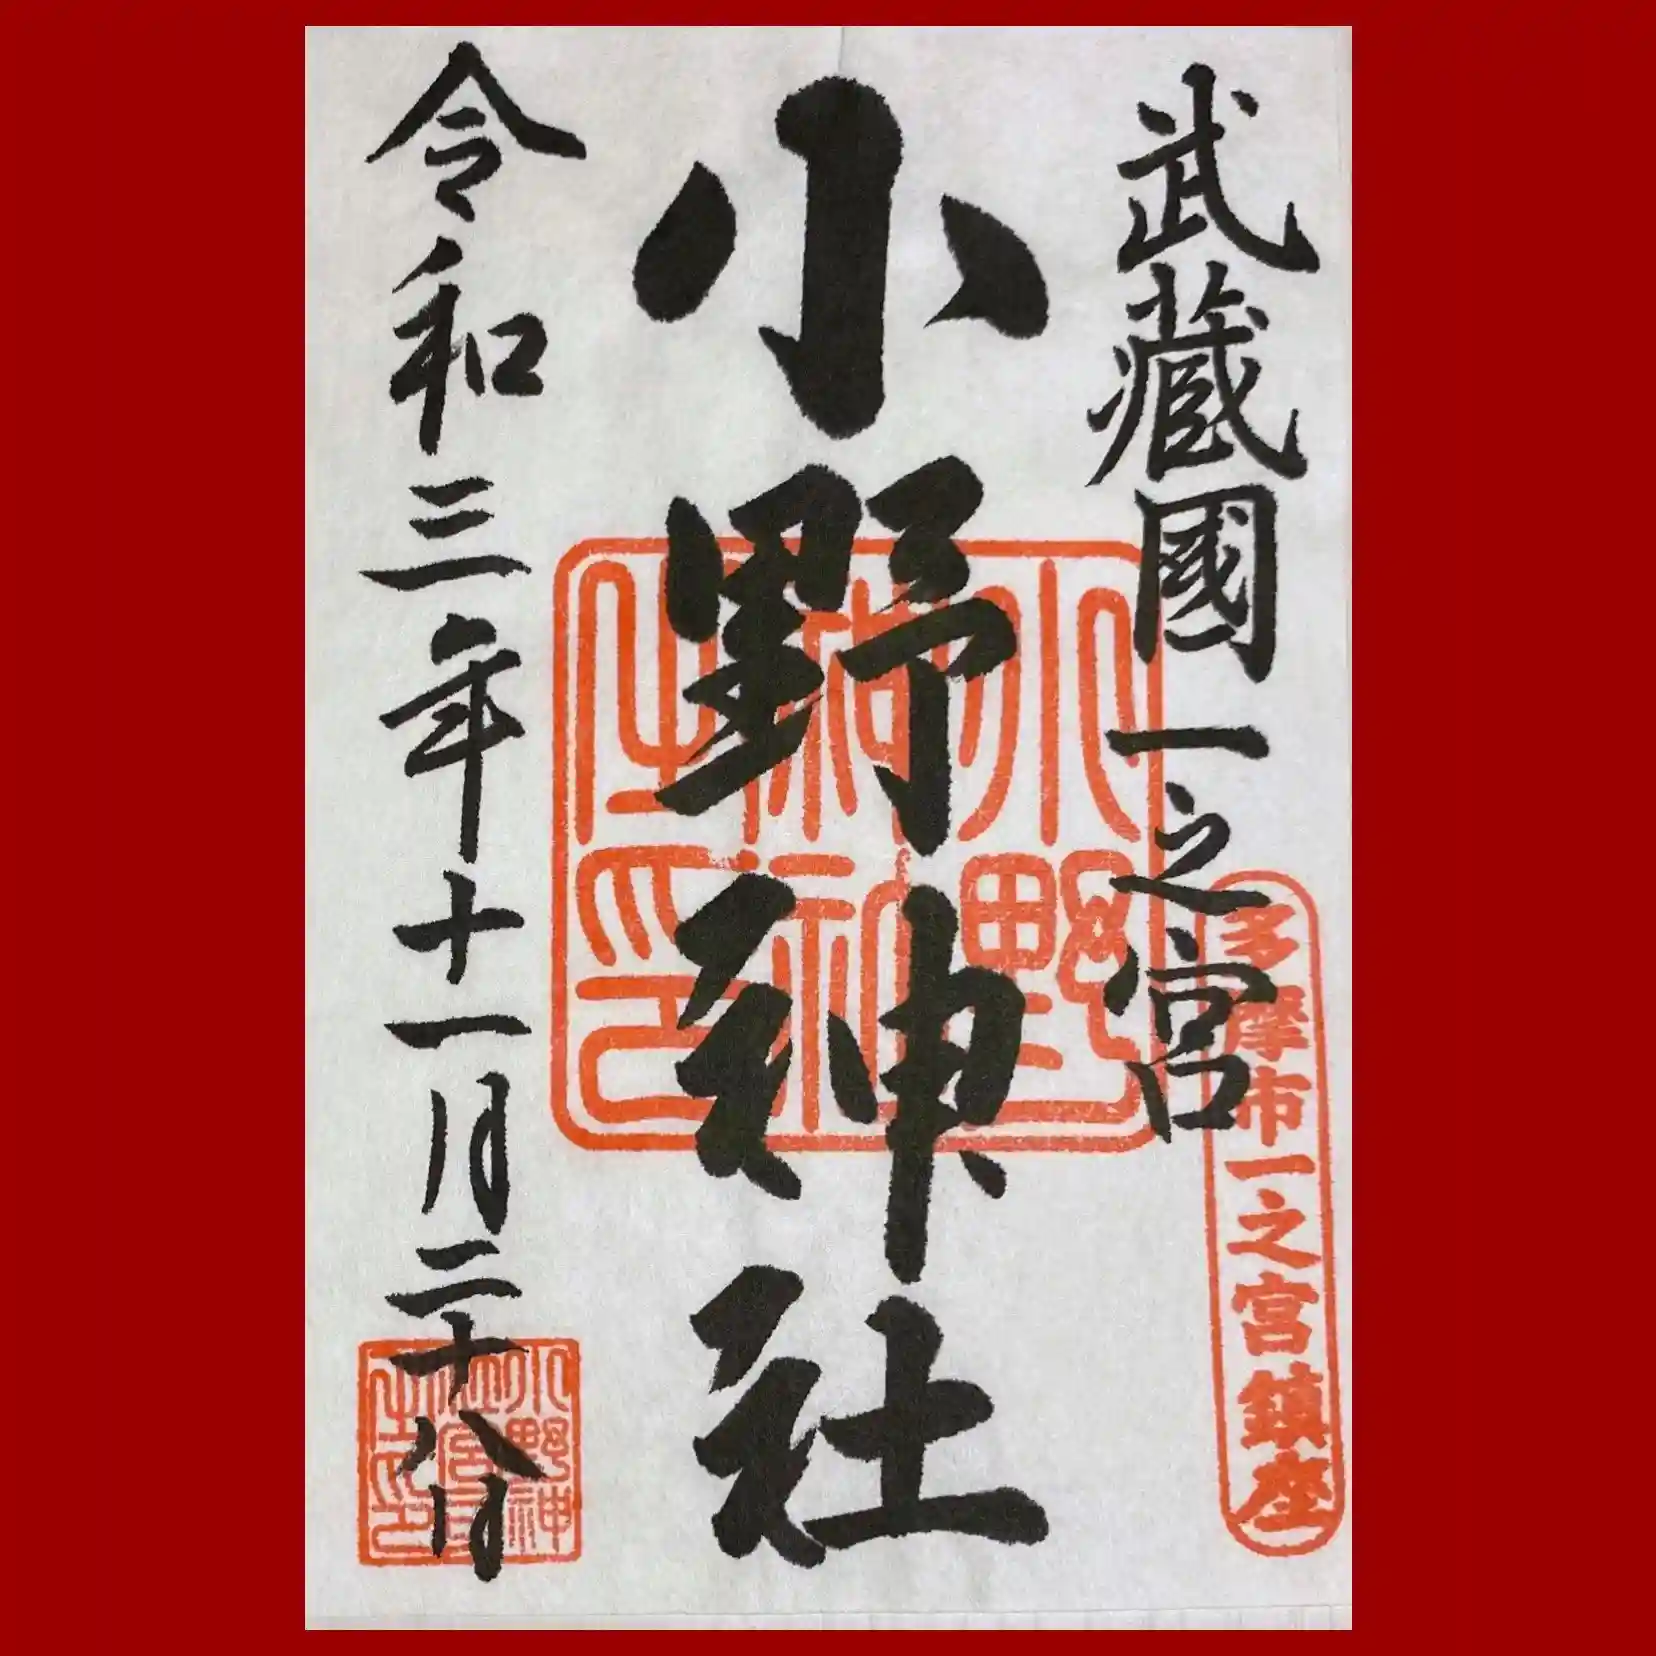 武藏國一之宮
多摩市一之宮鎮座
小野神社
小野神社之印
令和三年十一月二十八日
小野神社宮司之印